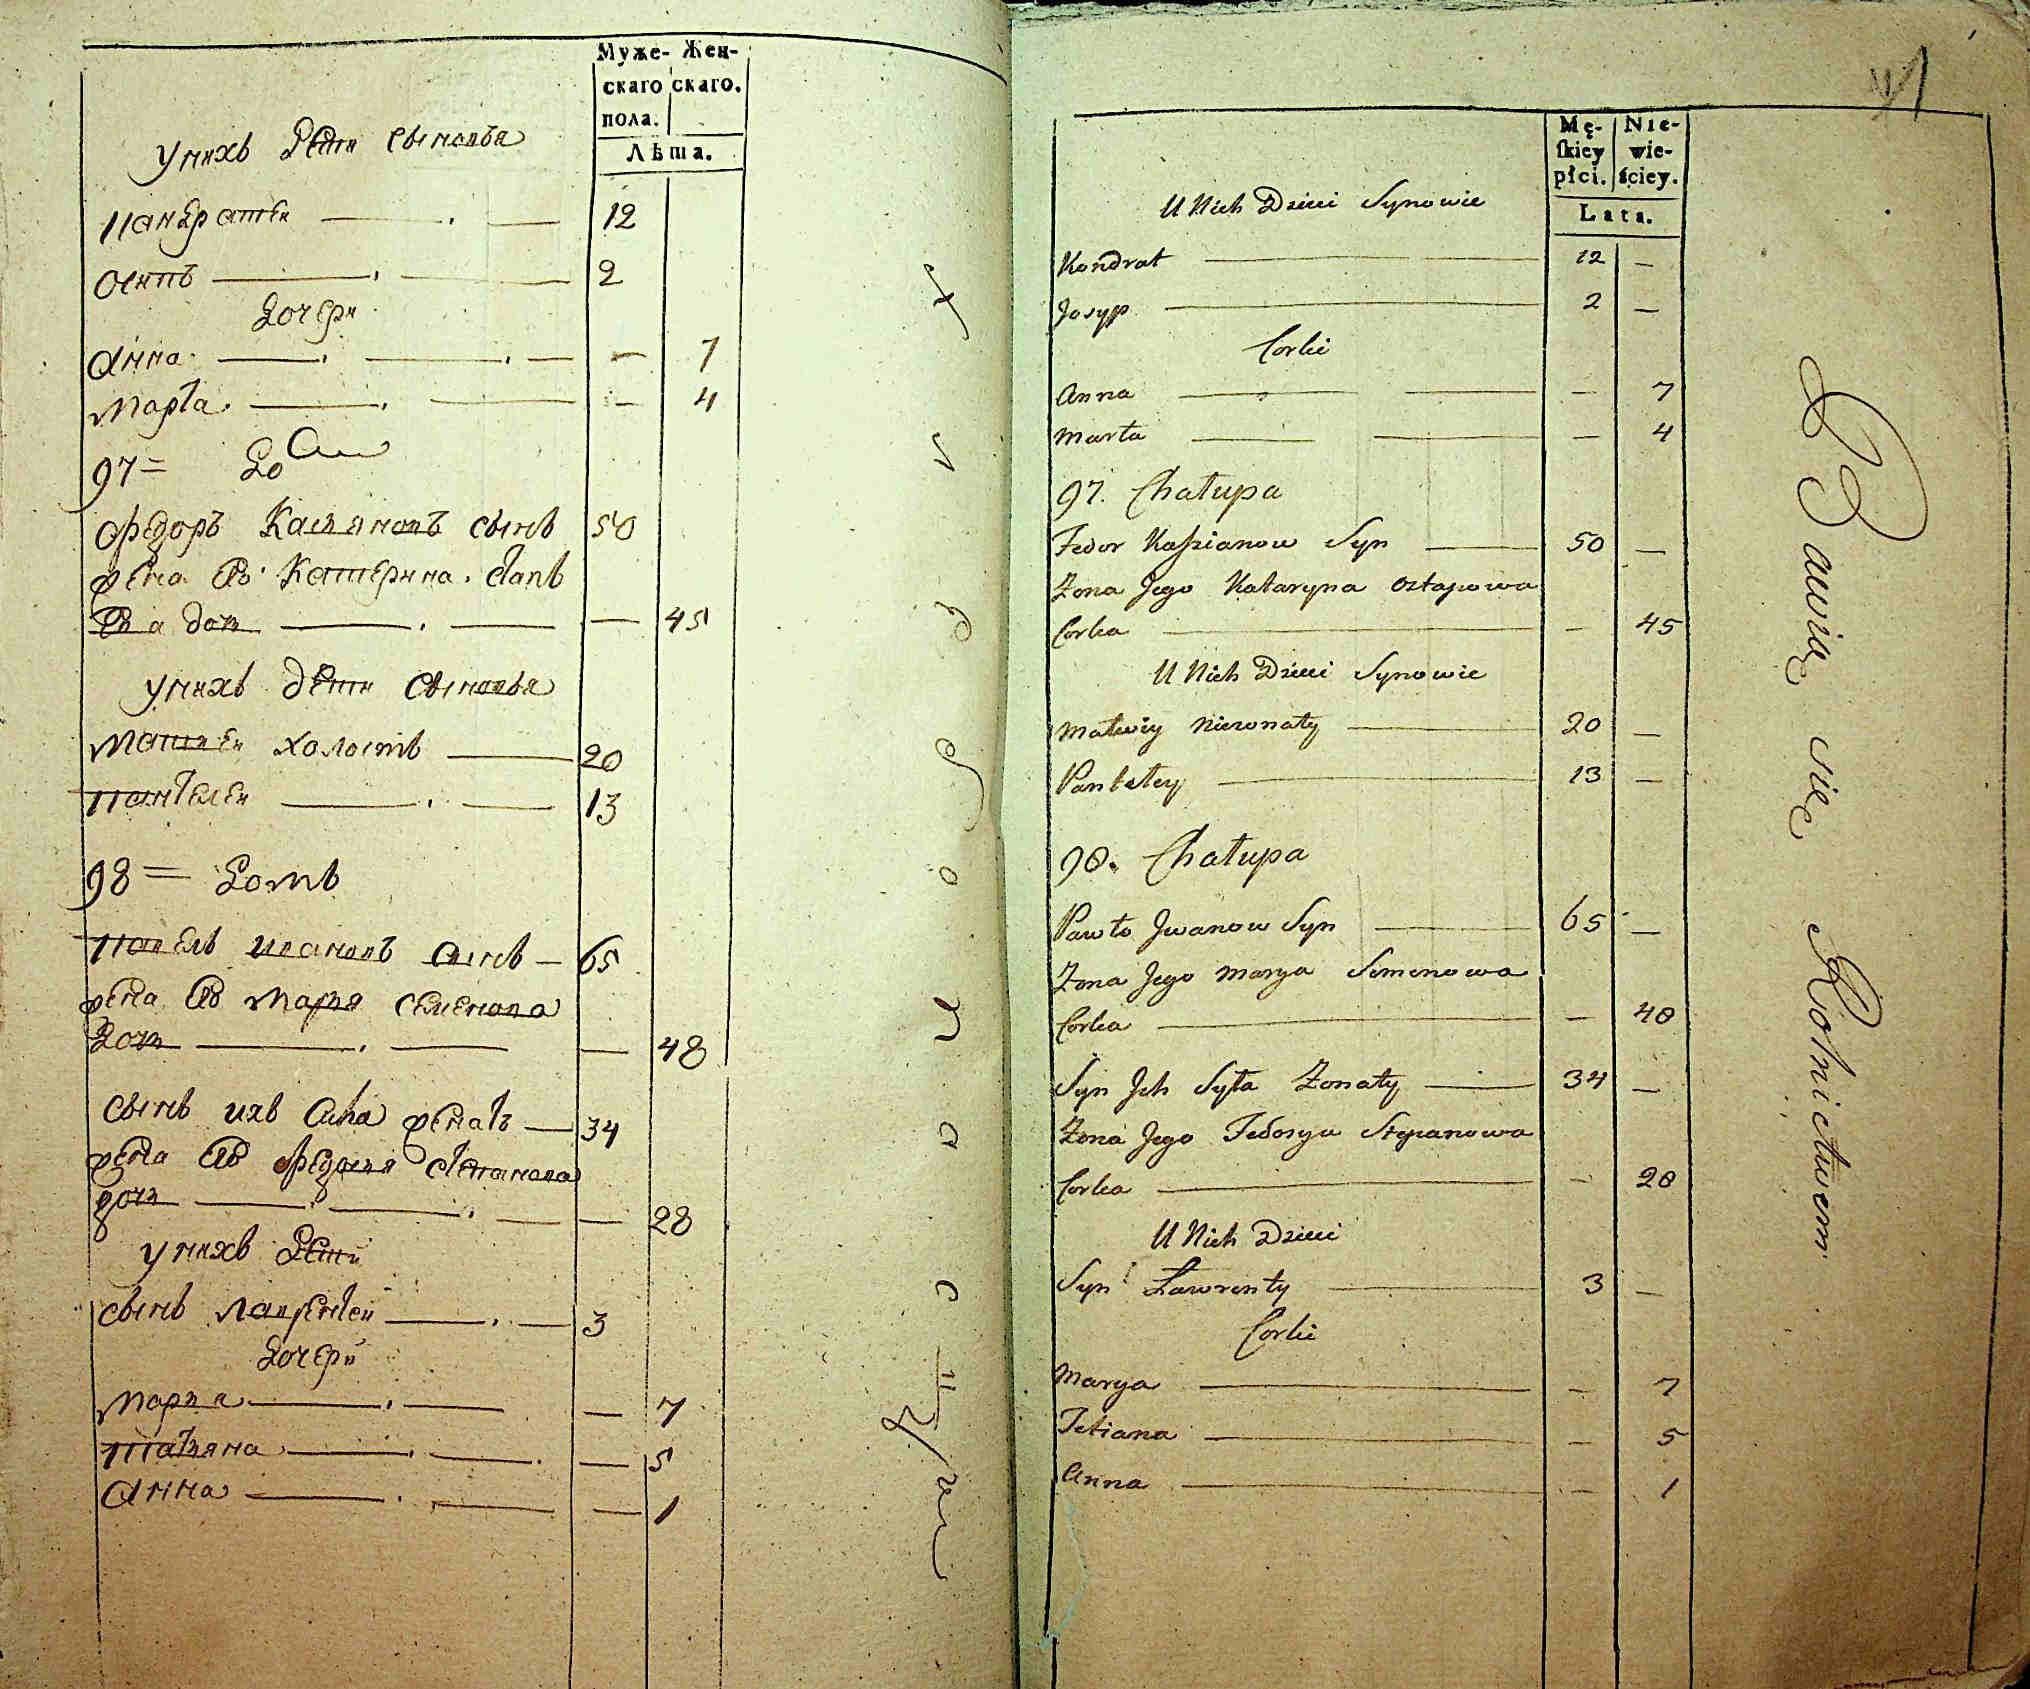 Муже- Жен-
скаго скаго.
пола.
Лѣта.
У нихъ дети сыновья
Панкратей 12
Осипъ 2
Дочери
Анна - 7
Марта - 4
97 = До
Федоръ Касяновъ сынъ 50
жена его Катерина Остапо
ва дочь - 45
У нихъ дети сыновья
Матвей холостъ 20
Пантелей 13
98 = Домъ
Павелъ Ивановъ сынъ 65
жена его Марья Семенова
дочь - 48
Сынъ ихъ Сила женатъ 34
жена его Федосья Степанова
дочь - 28
У нихъ дети
сынъ Лаврентей 3
Дочери
Марья - 7
Татьяна - 5
Анна - 1
41
Mę- Nie-
skiey wie-
płci. ściey.
Lata.
U Nich Dzieci Synowie
Kondrat 12 -
Josyp 2 -
Corki
Anna - 7
Marta - 4
97. Chałupa
Fedor Kaszianow Syn 50 -
Żona Jego Kataryna Ostapowa
Corka - 45
U Nich Dzieci Synowie
Matwiy Nieżonaty 20 -
Panteley 13 -
98. Chałupa
Pawło Jwanow Syn 65 -
Żona Jego Marya Semenowa
Corka - 48
Syn Jch Syła Żonaty 34 -
Żona Jego Fedosya Stepanowa
Corka - 28
U Nich Dzieci
Syn Ławrenty 3 -
Corki
Marya - 7
Tetiana - 5
Anna - 1
Bawią się Rolnictwem